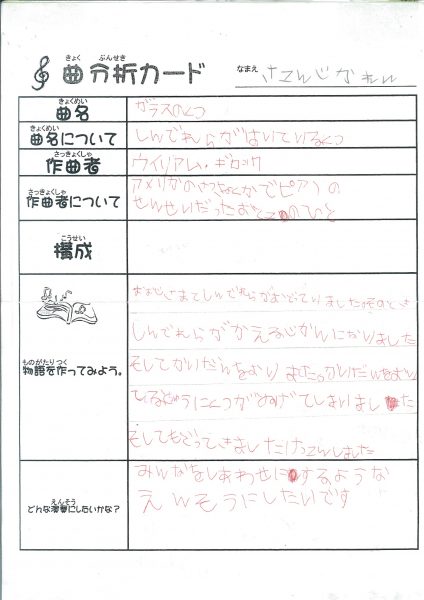 きょく ぶんせき
曲分析カード
なまえ
きょくめい
曲名
ガラスのくつ
きょくめい
曲名について
しんでれらがはいているくつ
さっきょくしゃ
作曲者
ウイリアム・ギロック
さっきょくしゃ
作曲者について
アメリカのさっきょくかでピアノの
せんせいだったおとこのひと
こうせい
構成
ものがたり つく
物語を作ってみよう。
おおじさまてしんでれらがおどていりましたそのとき
しんでれらがかえるじかんになりました
そしてかいだんをおり ました。かいだんをおり
ているとちゅうにくつがぬげてしまいました
そしてもどってきましたけっこんしました
えんそう
どんな演奏にしたいかな?
みんなをしあわせにするような
えんそうにしたいです